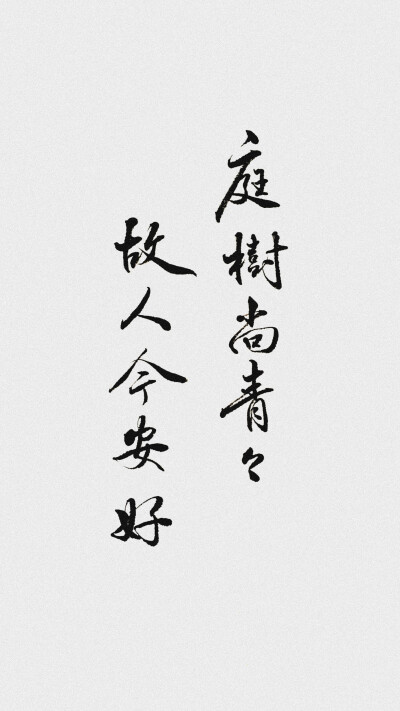 庭樹尚青々
故人今安好